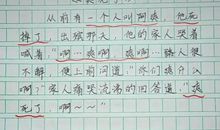 从前有一个人叫阿爽,他死
掉了,出殡那天,他的家人哭着
喊着“啊…爽啊,爽啊…路人便
不解,便上前问道:“你们爽什么
啊?”家人痛哭流涕的回答道,“爽
死了,啊~~”